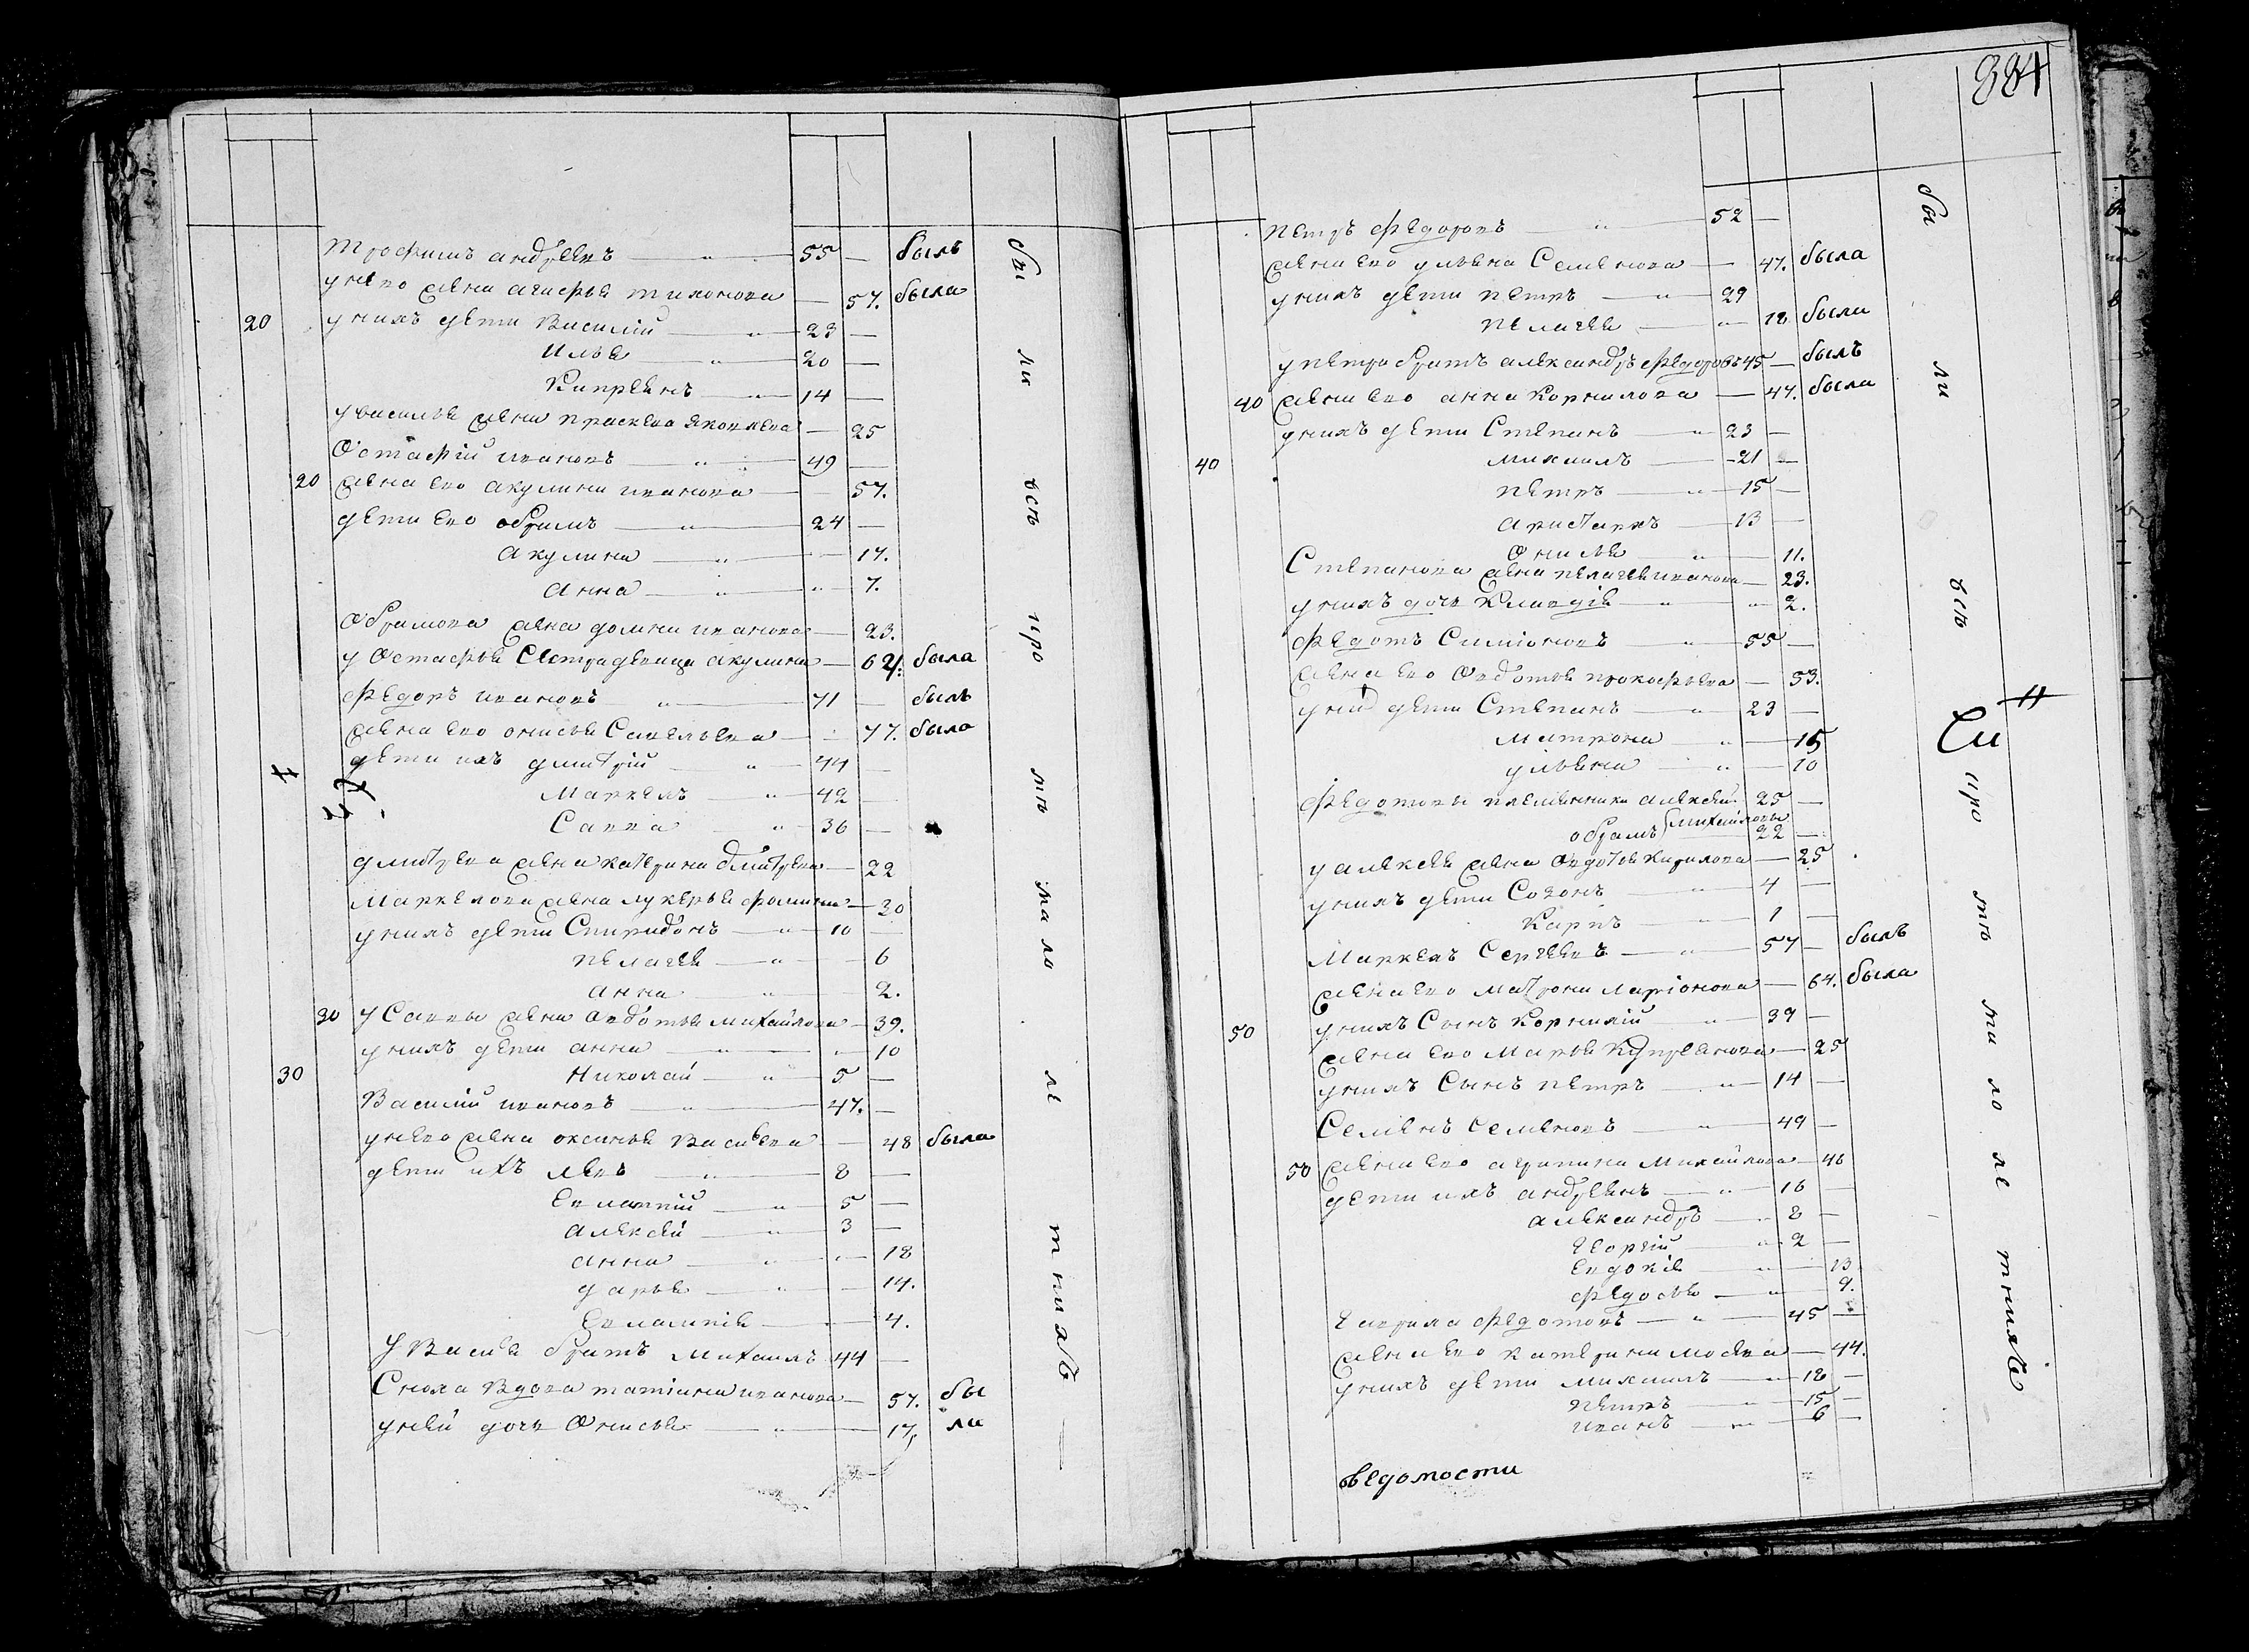 Трофимъ андреевъ 55 — былъ
у него жена агафья тихонова — 57. была
20 у нихъ дети василий 23 —
илья 20 —
киприянъ 14 —
у василья жена прасковя яковлева — 25
Остафий ивановъ 49 —
20 жена ево акулина иванова — 57.
дети ево обрамъ 24 —
акулина — 17.
анна — 7.
обрамова жена домна иванова — 23.
у Остафья сестра девица акулина — 62. была
Федоръ ивановъ 71 — былъ
жена ево онисья Савельева — 77. была
дети ихъ дмитрий 44 —
Маркелъ 42 —
Савва 36 —
дмитрева жена катерина дмитрева — 22
Маркелова жена лукерья фомина — 30
у нихъ дети Спиридонъ 10 —
пелагея — 6
анна — 2.
30 у Саввы жена овдотья михайлова — 39.
у нихъ дети анна — 10
30 Николай 5 —
Василий ивановъ 47. —
у него жена оксинья Васильева — 48 была
дети ихъ левъ 8 —
евлампий 5 —
алексей 3 —
анна — 18
дарья — 14.
евлампия — 4.
у Василья братъ михаилъ 44 —
Сноха вдова татиана иванова — 57. бы
у ней дочь Онисья — 17, ли
бы ли всѣ про тѣ ма ло ле тниѣ
384
петръ федоровъ 52 —
жена ево ульяна Семенова — 47. была
у нихъ дети петръ 29
пелагея — 18 была
у петра братъ александръ федоровъ 45 — былъ
40 жена ево анна корнилова — 47. была
у нихъ дети Степанъ 23 —
40 михаилъ 21 —
петръ 15 —
аристархъ 13 —
Онисья — 11.
Степанова жена пелагея иванова — 23.
у нихъ дочь клавдия — 2.
Федотъ Симионовъ 55 —
жена ево Овдотья прокофьева — 53.
у них дети Степанъ 23 —
матрона — 15
ульяна — 10
Федотовы племянники алексей 25 —
обрамъ михайловы 22 —
у алексея жена овдотья кирилова — 25
у нихъ дети Созонъ 4 —
карпъ 1 —
Маркелъ Сергеевъ 57 — былъ
жена ево матрона лариoнова — 64. была
50 у нихъ Сынъ корнилий 39 —
жена ево марья куприянова — 25
у нихъ Сынъ петръ 14 —
Семенъ семеновъ 49 —
50 жена ево агрипина михайлова — 46
дети ихъ андреянъ 16 —
александръ 8 —
георгий 2 —
евдокия — 13
федосья — 9.
гаврила федотовъ 45 —
жена ево катерина мосева — 44.
у нихъ дети михаилъ 18 —
петръ 15 —
иванъ 6 —
бы ли всѣ про тѣ ма ло ле тниѣ
ведомости